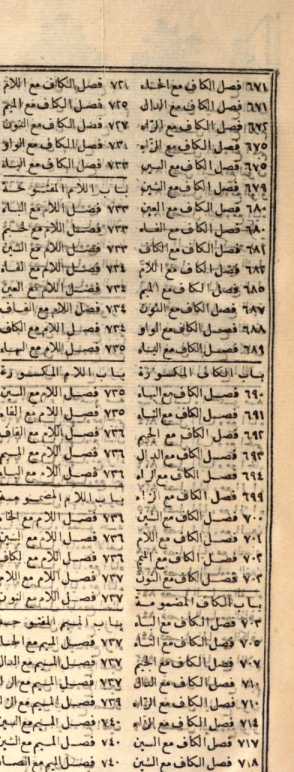 ٦٧١ فصل الكاف مع الخاء
٦٧١ فصل الكاف مع الدال
٦٧٢ فصل الكاف مع الراء
٦٧٥ فصل الكاف مع الزاء
٦٧٥ فصل الكاف مع السين
٦٧٩ فصل الكاف مع الشين
٦٨٠ فصل الكاف مع العين
٦٨٠ فصل الكاف مع الفاء
٦٨١ فصل الكاف مع الكاف
٦٨٢ فصل الكاف مع اللام
٦٨٥ فصل الكاف مع الميم
٦٨٧ فصل الكاف مع النون
٦٨٨ فصل الكاف مع الواو
٦٨٩ فصل الكاف مع الياء
باب الكاف المكسورة
٦٩٠ فصل الكاف مع الباء
٦٩١ فصل الكاف مع التاء
٦٩٢ فصل الكاف مع الجيم
٦٩٣ فصل الكاف مع الدال
٦٩٤ فصل الكاف مع الراء
٦٩٩ فصل الكاف مع الزاء
٧٠٠ فصل الكاف مع الشين
٧٠١ فصل الكاف مع اللام
٧٠٢ فصل الكاف مع الميم
٧٠٢ فصل الكاف مع النون
باب الكاف المضمومة
٧٠٣ فصل الكاف مع التاء
٧٠٥ فصل الكاف مع الثاء
٧٠٧ فصل الكاف مع الجيم
٧١٠ فصل الكاف مع الدال
٧١٠ فصل الكاف مع الراء
٧١٤ فصل الكاف مع الزاء
٧١٧ فصل الكاف مع السين
٧١٨ فصل الكاف مع الشين
٧٢١ فصل الكاف مع اللام
٧٢٥ فصل الكاف مع الميم
٧٢٧ فصل الكاف مع النون
٧٣١ فصل الكاف مع الواو
٧٣٣ فصل الكاف مع الياء
باب اللام المفتوحة
٧٣٣ فصل اللام مع التاء
٧٣٣ فصل اللام مع الجيم
٧٣٣ فصل اللام مع الشين
٧٣٤ فصل اللام مع الفاء
٧٣٤ فصل اللام مع العين
٧٣٤ فصل اللام مع القاف
٧٣٤ فصل اللام مع الكاف
٧٣٥ فصل اللام مع الهاء
باب اللام المكسورة
٧٣٥ فصل اللام مع السين
٧٣٥ فصل اللام مع الفاء
٧٣٦ فصل اللام مع القاف
٧٣٦ فصل اللام مع الميم
٧٣٦ فصل اللام مع الياء
باب اللام المضمومة
٧٣٦ فصل اللام مع الخاء
٧٣٦ فصل اللام مع السين
٧٣٦ فصل اللام مع الكاف
٧٣٧ فصل اللام مع اللام
٧٣٧ فصل اللام مع النون
باب الميم المفتوحة
٧٣٧ فصل الميم مع الخاء
٧٣٧ فصل الميم مع الدال
٧٣٧ فصل الميم مع
٧٣٩ فصل الميم مع
٧٤٠ فصل الميم مع السين
٧٤٠ فصل الميم مع الشين
٧٤٠ فصل الميم مع الصاد